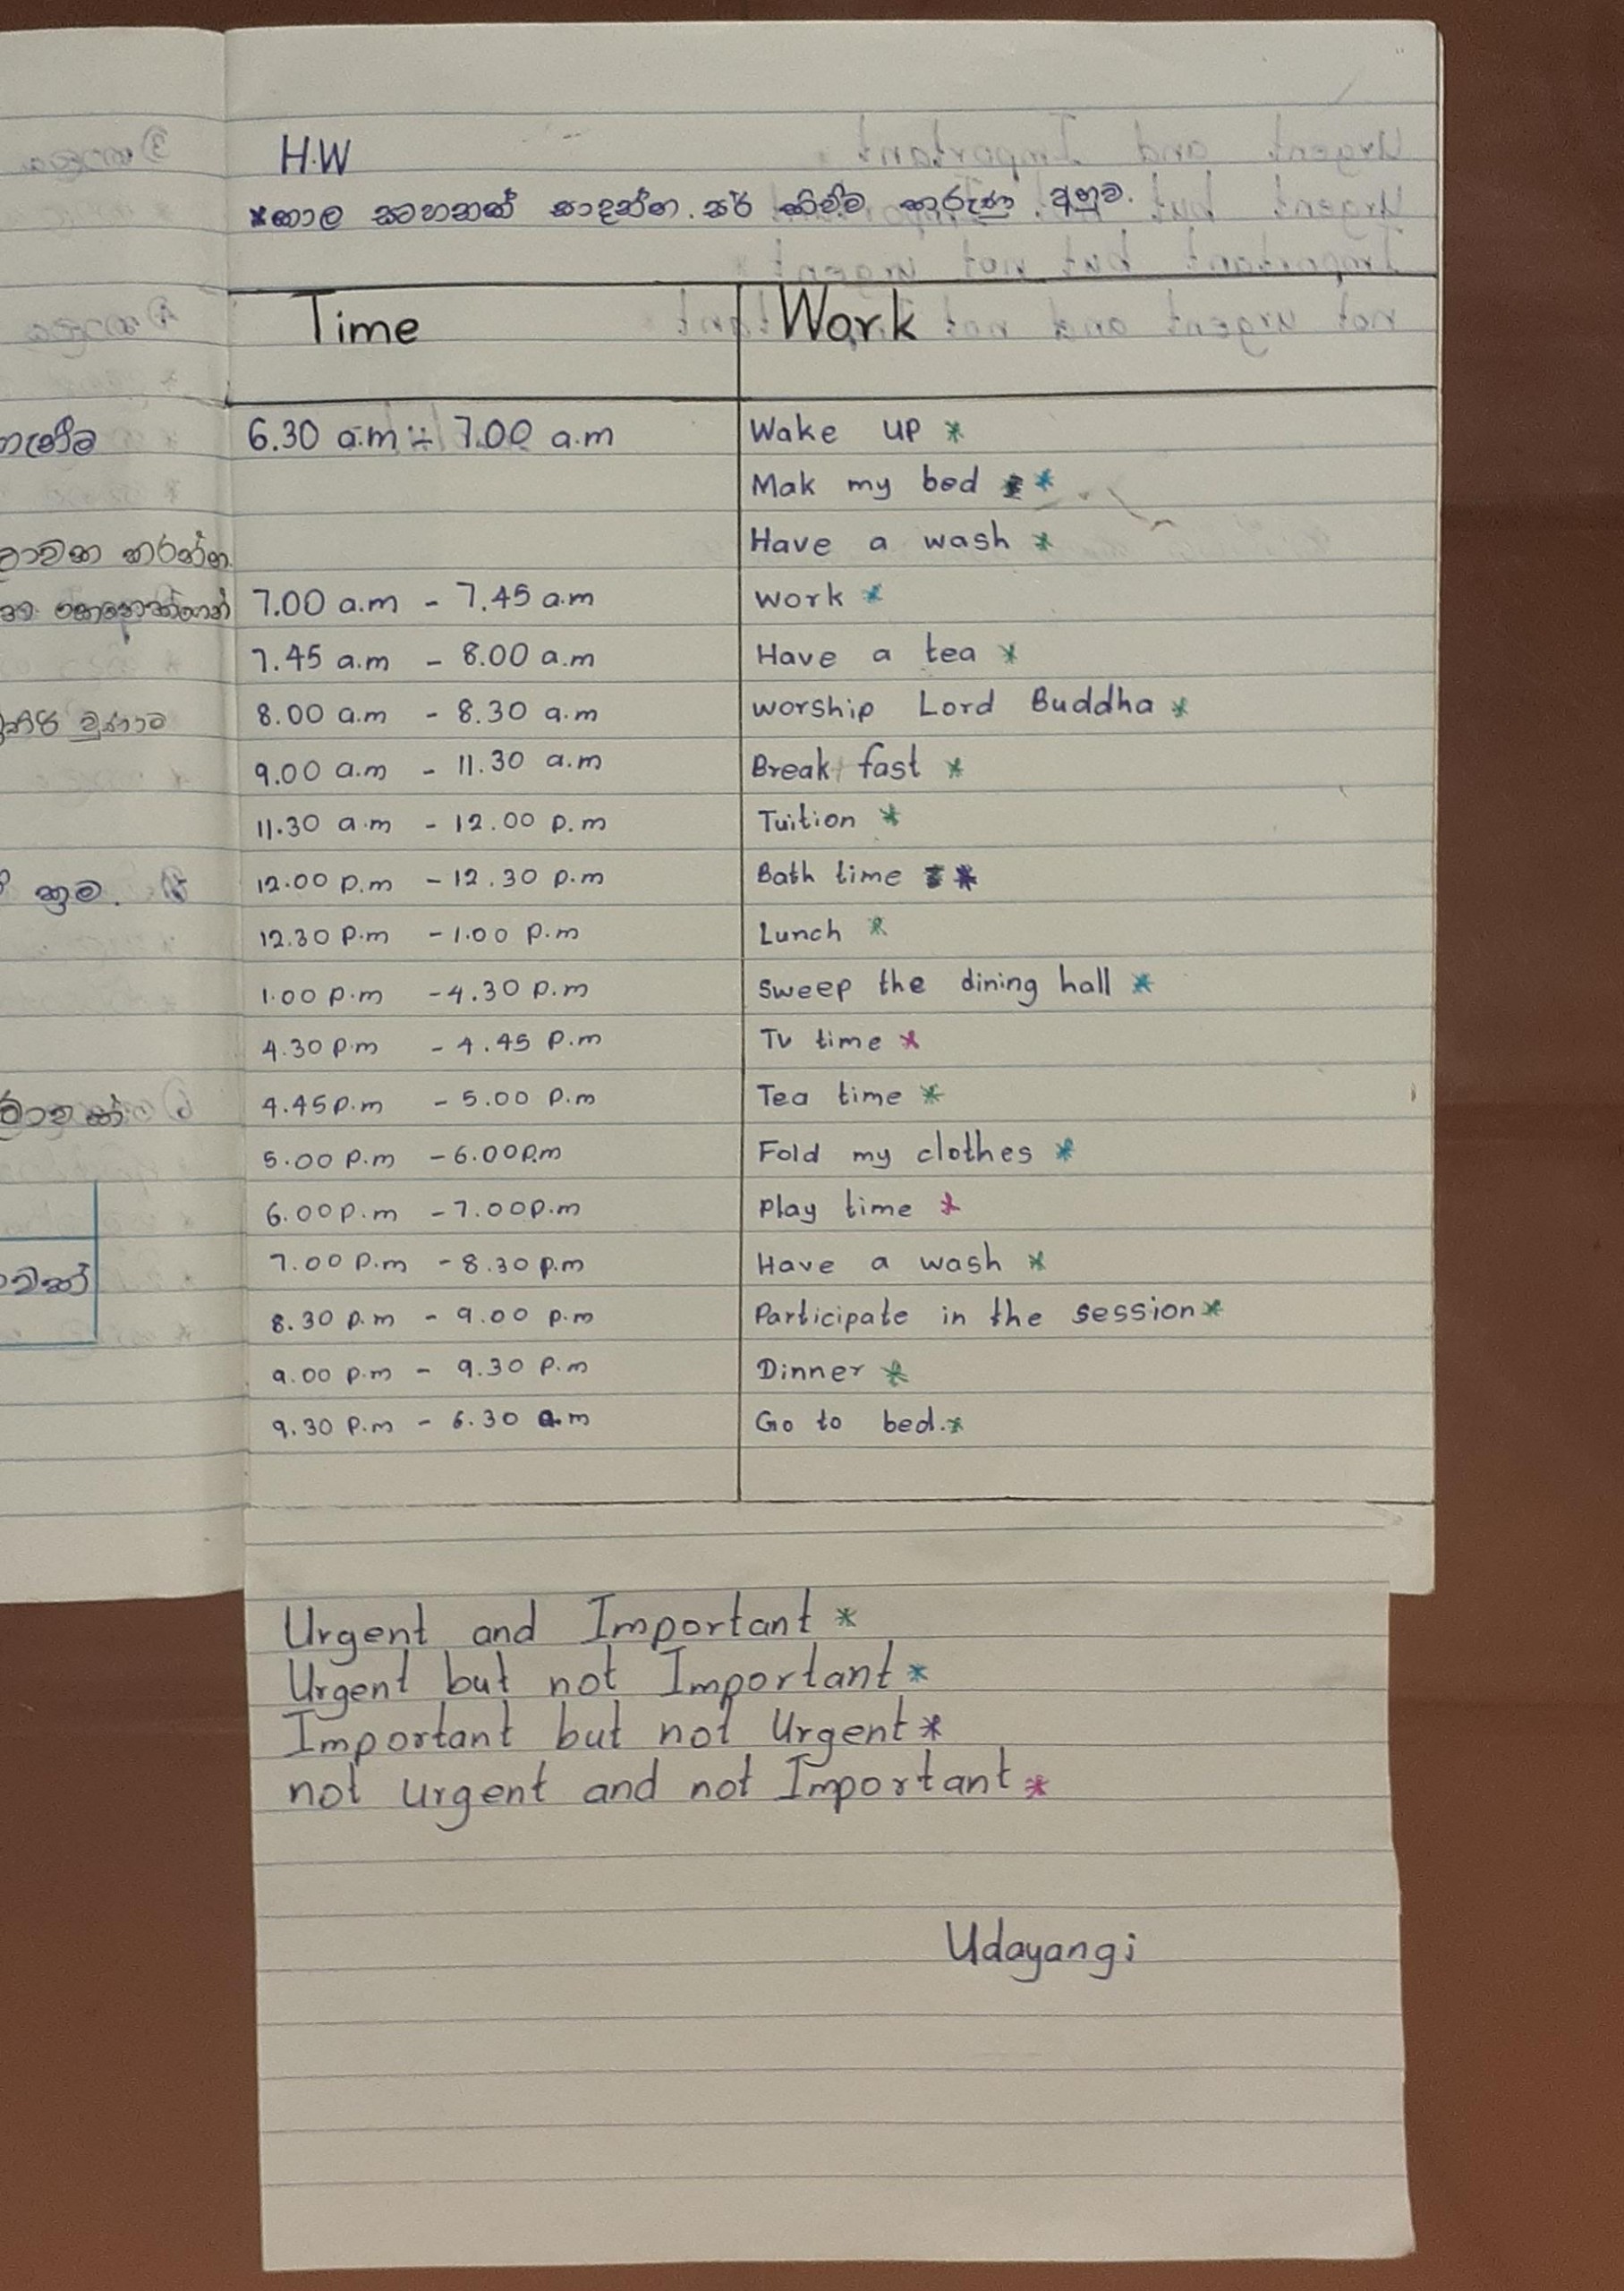 H.W
*කාල සටහනක් සාදන්න. සර් කිව්ව කරුණු අනුව.
Time Work
6.30 a.m - 7.00 a.m Wake up *
Mak my bed *
Have a wash *
7.00 a.m - 7.45 a.m work *
7.45 a.m - 8.00 a.m Have a tea *
8.00 a.m - 8.30 a.m worship Lord Buddha *
9.00 a.m - 11.30 a.m Break fast *
11.30 a.m - 12.00 p.m Tuition *
12.00 p.m - 12.30 p.m Bath time *
12.30 p.m - 1.00 p.m Lunch *
1.00 p.m - 4.30 p.m Sweep the dining hall *
4.30 p.m - 4.45 p.m Tv time *
4.45p.m - 5.00 p.m Tea time *
5.00 p.m - 6.00p.m Fold my clothes *
6.00p.m - 7.00p.m Play time *
7.00 p.m - 8.30 p.m Have a wash *
8.30 p.m - 9.00 p.m Participate in the session*
9.00 p.m - 9.30 p.m Dinner *
9.30 p.m - 6.30 a.m Go to bed.*
කරන්න.
වුණාම
ක්‍රම.
Urgent and Important *
Urgent but not Important *
Important but not Urgent *
not urgent and not Important *
Udayangi